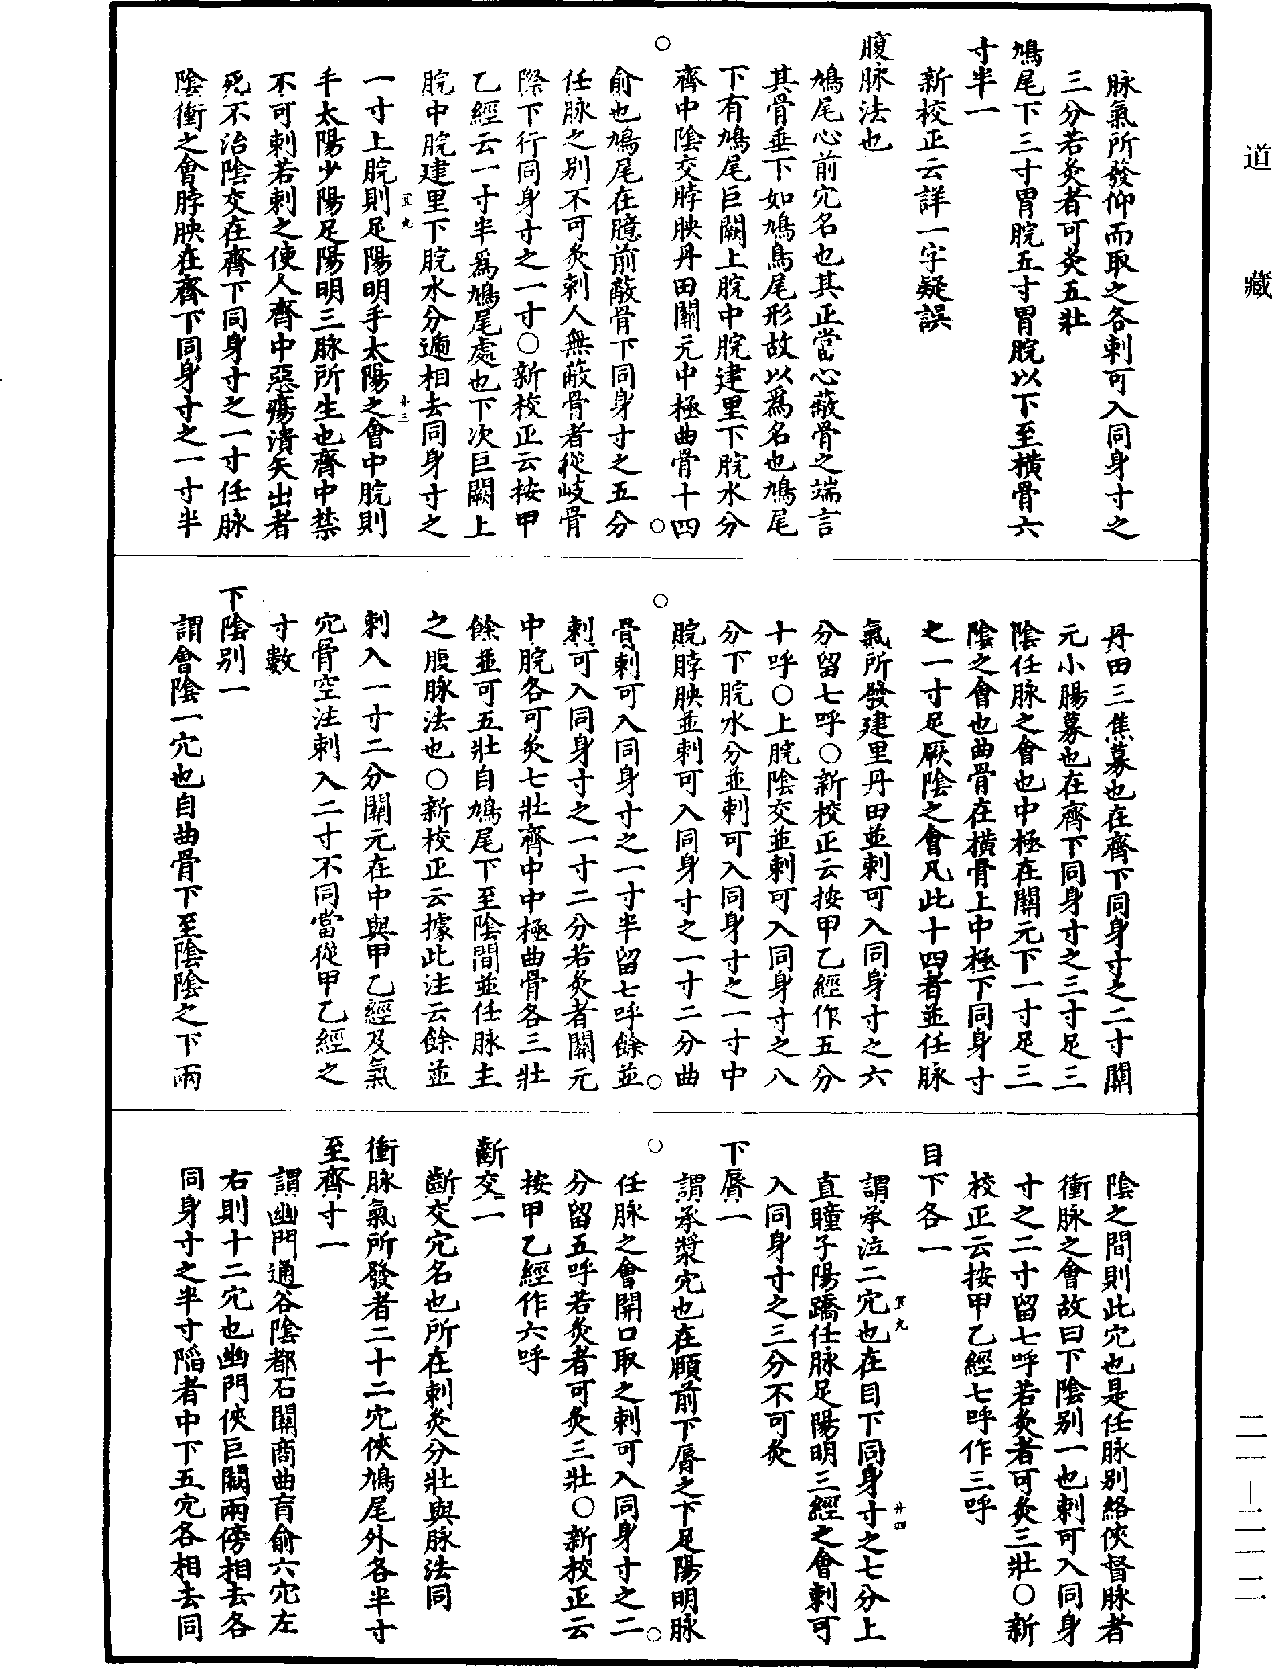 道藏
脉氣所發仰而取之各刺可入同身寸之
三分若灸者可灸五壯
鳩尾下三寸胃脘五寸胃脘以下至橫骨六
寸半一
新校正云詳一字疑誤
腹脉法也
鳩尾心前穴名也其正當心蔽骨之端言
其骨垂下如鳩鳥尾形故以爲名也鳩尾
下有鳩尾巨闕上脘中脘建里下脘水分
齊中陰交脖胦丹田關元中極曲骨十四
俞也鳩尾在臆前蔽骨下同身寸之五分
任脉之别不可灸刺人無蔽骨者從岐骨
際下行同身寸之一寸○新校正云按甲
乙經云一寸半爲鳩尾處也下次巨闕上
脘中脘建里下脘水分遞相去同身寸之
一寸上脘則足陽明手太陽之會中脘則
手太陽少陽足陽明三脉所生也齊中禁
不可刺若刺之使人齊中惡瘍潰矢出者
死不治陰交在齊下同身寸之一寸任脉
陰衝之會脖胦在齊下同身寸之一寸半
丹田三焦募也在齊下同身寸之二寸關
元小腸募也在齊下同身寸之三寸足三
陰任脉之會也中極在關元下一寸足三
陰之會也曲骨在橫骨上中極下同身寸
之一寸足厥陰之會凡此十四者並任脉
氣所發建里丹田並刺可入同身寸之六
分留七呼○新校正云按甲乙經作五分
十呼○上脘陰交並刺可入同身寸之八
分下脘水分並刺可入同身寸之一寸中
脘脖胦並刺可入同身寸之一寸二分曲
骨刺可入同身寸之一寸半留七呼餘並
刺可入同身寸之一寸二分若灸者關元
中脘各可灸七壯齊中中極曲骨各三壯
餘並可五壯自鳩尾下至陰間並任脉主
之腹脉法也○新校正云據此注云餘並
刺入一寸二分關元在中與甲乙經及氣
穴骨空注刺入二寸不同當從甲乙經之
寸數
下陰别一
謂會陰一穴也自曲骨下至陰陰之下兩
陰之間則此穴也是任脉别絡俠督脉者
衝脉之會故曰下陰别一也刺可入同身
寸之二寸留七呼若灸者可灸三壯○新
校正云按甲乙經七呼作三呼
目下各一
謂承泣二穴也在目下同身寸之七分上
直瞳子陽蹻任脉足陽明三經之會刺可
入同身寸之三分不可灸
下脣一
謂承漿穴也在頤前下脣之下足陽明脉
任脉之會開口取之刺可入同身寸之二
分留五呼若灸者可灸三壯○新校正云
按甲乙經作六呼
齗交一
齗交穴名也所在刺灸分壯與脉法同
衝脉氣所發者二十二穴俠鳩尾外各半寸
至齊寸一
謂幽門通谷陰都石關商曲肓俞六穴左
右則十二穴也幽門俠巨闕兩傍相去各
同身寸之半寸陷者中下五穴各相去同
二一—二一二